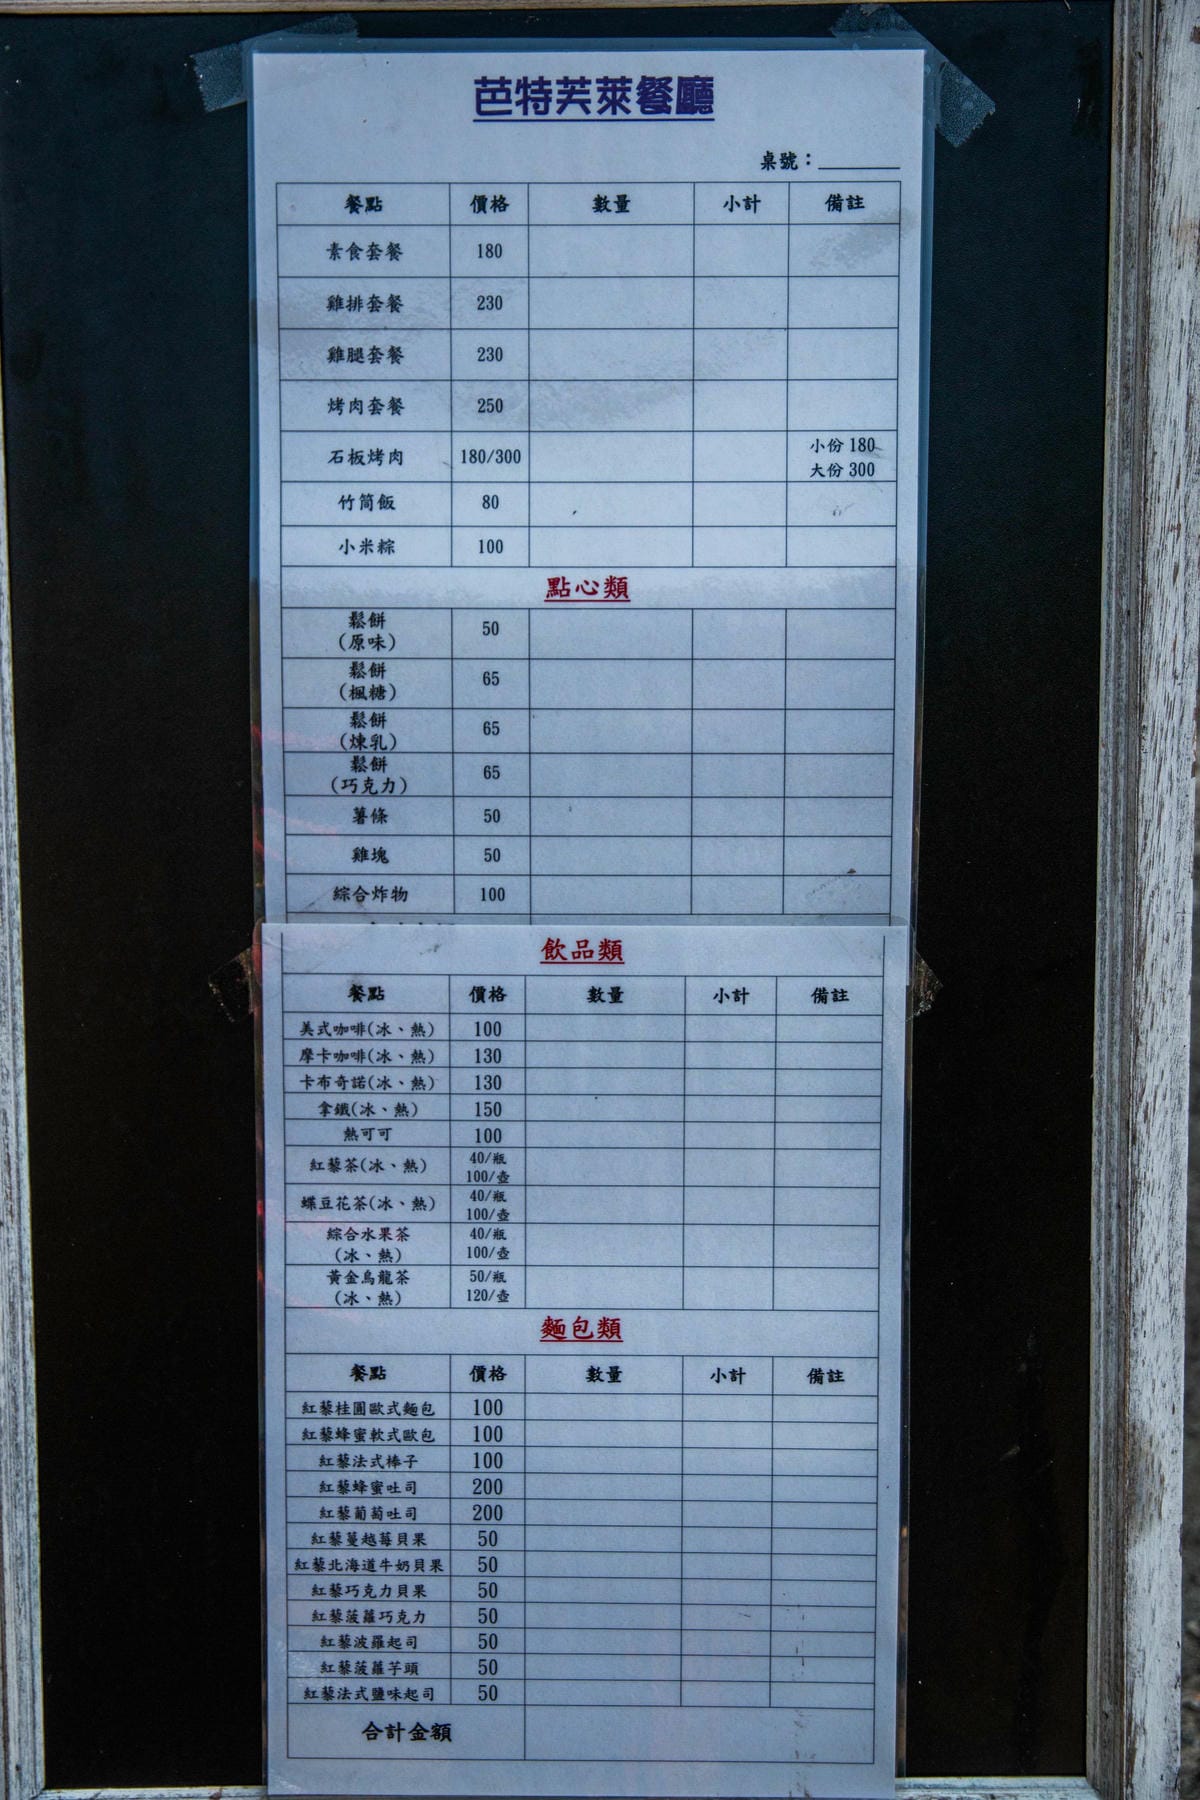 芭特芙萊餐廳
桌號：
餐點 價格 數量 小計 備註
素食套餐 180
雞排套餐 230
雞腿套餐 230
烤肉套餐 250
石板烤肉 180/300 小份 180
大份 300
竹筒飯 80
小米粽 100
點心類
鬆餅
(原味) 50
鬆餅
(楓糖) 65
鬆餅
(煉乳) 65
鬆餅
(巧克力) 65
薯條 50
雞塊 50
綜合炸物 100
飲品類
餐點 價格 數量 小計 備註
美式咖啡(冰、熱) 100
摩卡咖啡(冰、熱) 130
卡布奇諾(冰、熱) 130
拿鐵(冰、熱) 150
熱可可 100
紅藜茶(冰、熱) 40/瓶
100/壺
蝶豆花茶(冰、熱) 40/瓶
100/壺
綜合水果茶 40/瓶
(冰、熱) 100/壺
黃金烏龍茶 50/瓶
(冰、熱) 120/壺
麵包類
餐點 價格 數量 小計 備註
紅藜桂圓歐式麵包 100
紅藜蜂蜜軟式歐包 100
紅藜法式棒子 100
紅藜蜂蜜吐司 200
紅藜葡萄吐司 200
紅藜蔓越莓貝果 50
紅藜北海道牛奶貝果 50
紅藜巧克力貝果 50
紅藜菠蘿巧克力 50
紅藜波羅起司 50
紅藜菠蘿芋頭 50
紅藜法式鹽味起司 50
合計金額